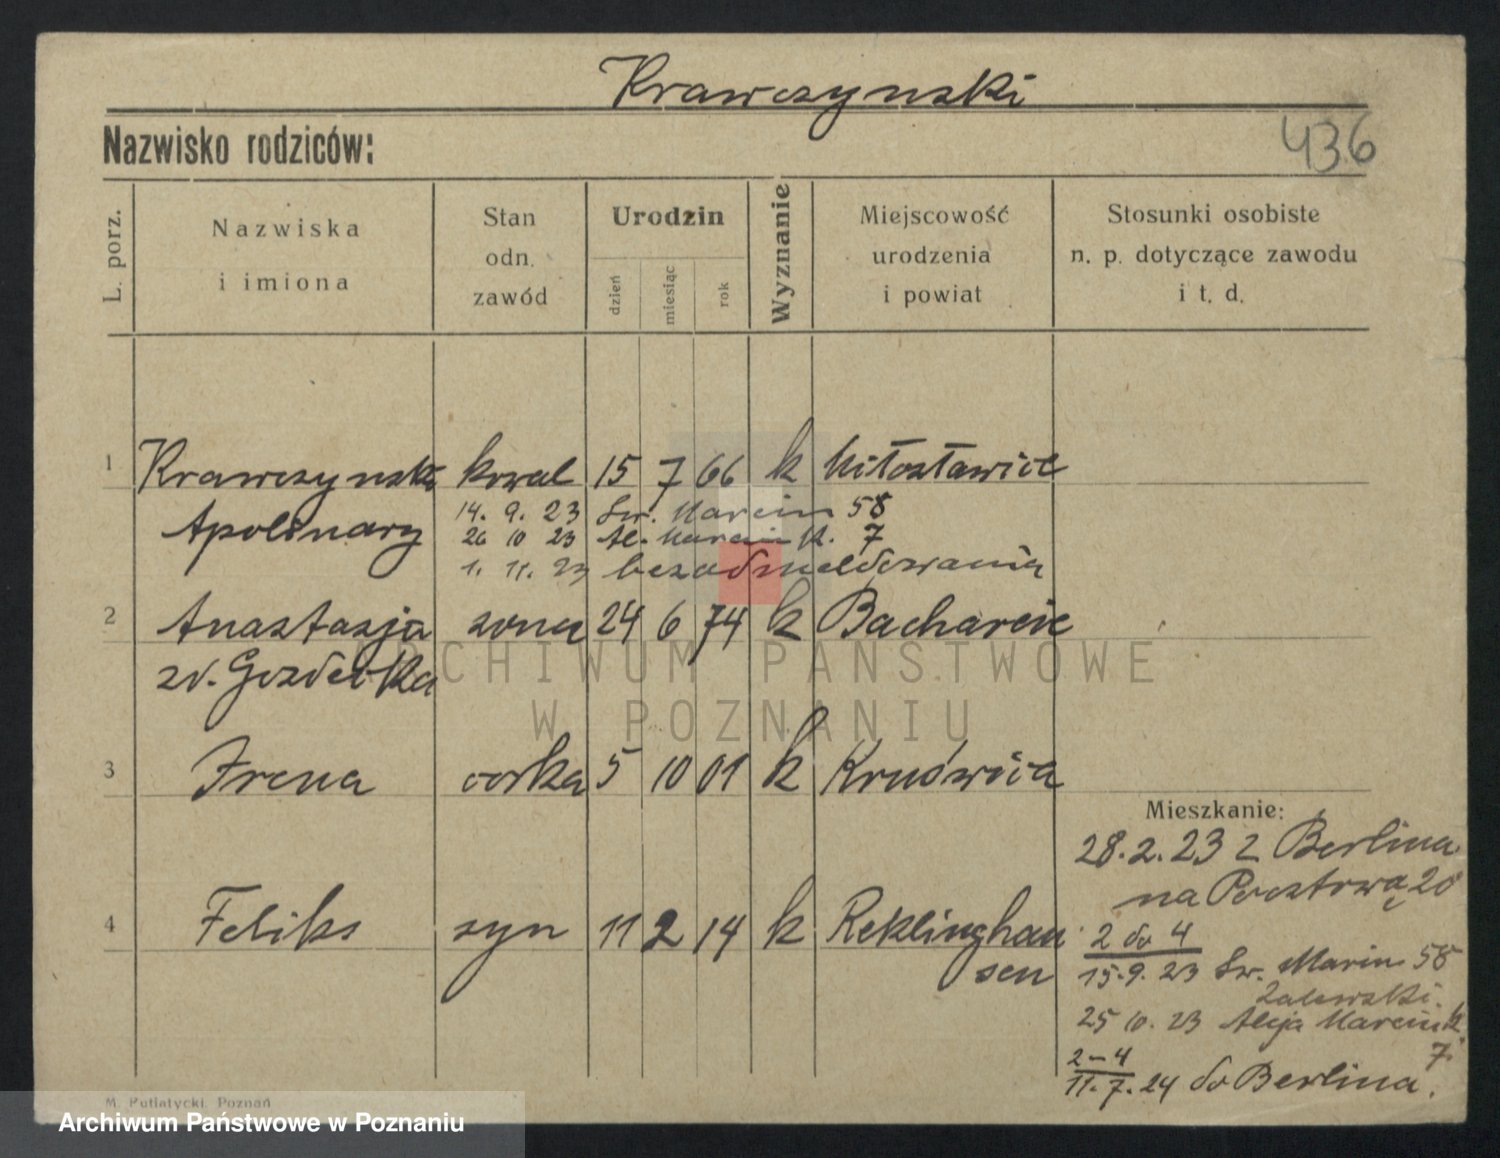 Krawczynski
Nazwisko rodziców:
436
L. porz.
Nazwiska
i imiona
Stan
odn.
zawód
Urodzin
dzień
miesiąc
rok
Wyznanie
Miejscowość
urodzenia
i powiat
Stosunki osobiste
n. p. dotyczące zawodu
i t. d.
1 Krawczynski kowal 15 7 66 k Miłosławice
Apolinary 14. 9. 23 Św. Marcin 58
26 10 23 Al. Marcink. 7
1. 11. 23 bez odmeldowania
2 Anastazja żona 24 6 74 k Bacharcie
zd. Gozdecka
3 Irena córka 5 10 01 k Kruświca
Mieszkanie:
28.2.23 z Berlina
na Pocztową 20
4 Feliks syn 11 2 14 k Reklinghau
sen
2 do 4
15.9.23 Św. Marcin 58
Zalewski.
25 10. 23 Aleja Marcink
7.
2-4
11.7.24 do Berlina.
M. Putiatycki, Poznań
ARCHIWUM PAŃSTWOWE
W POZNANIU
Archiwum Państwowe w Poznaniu